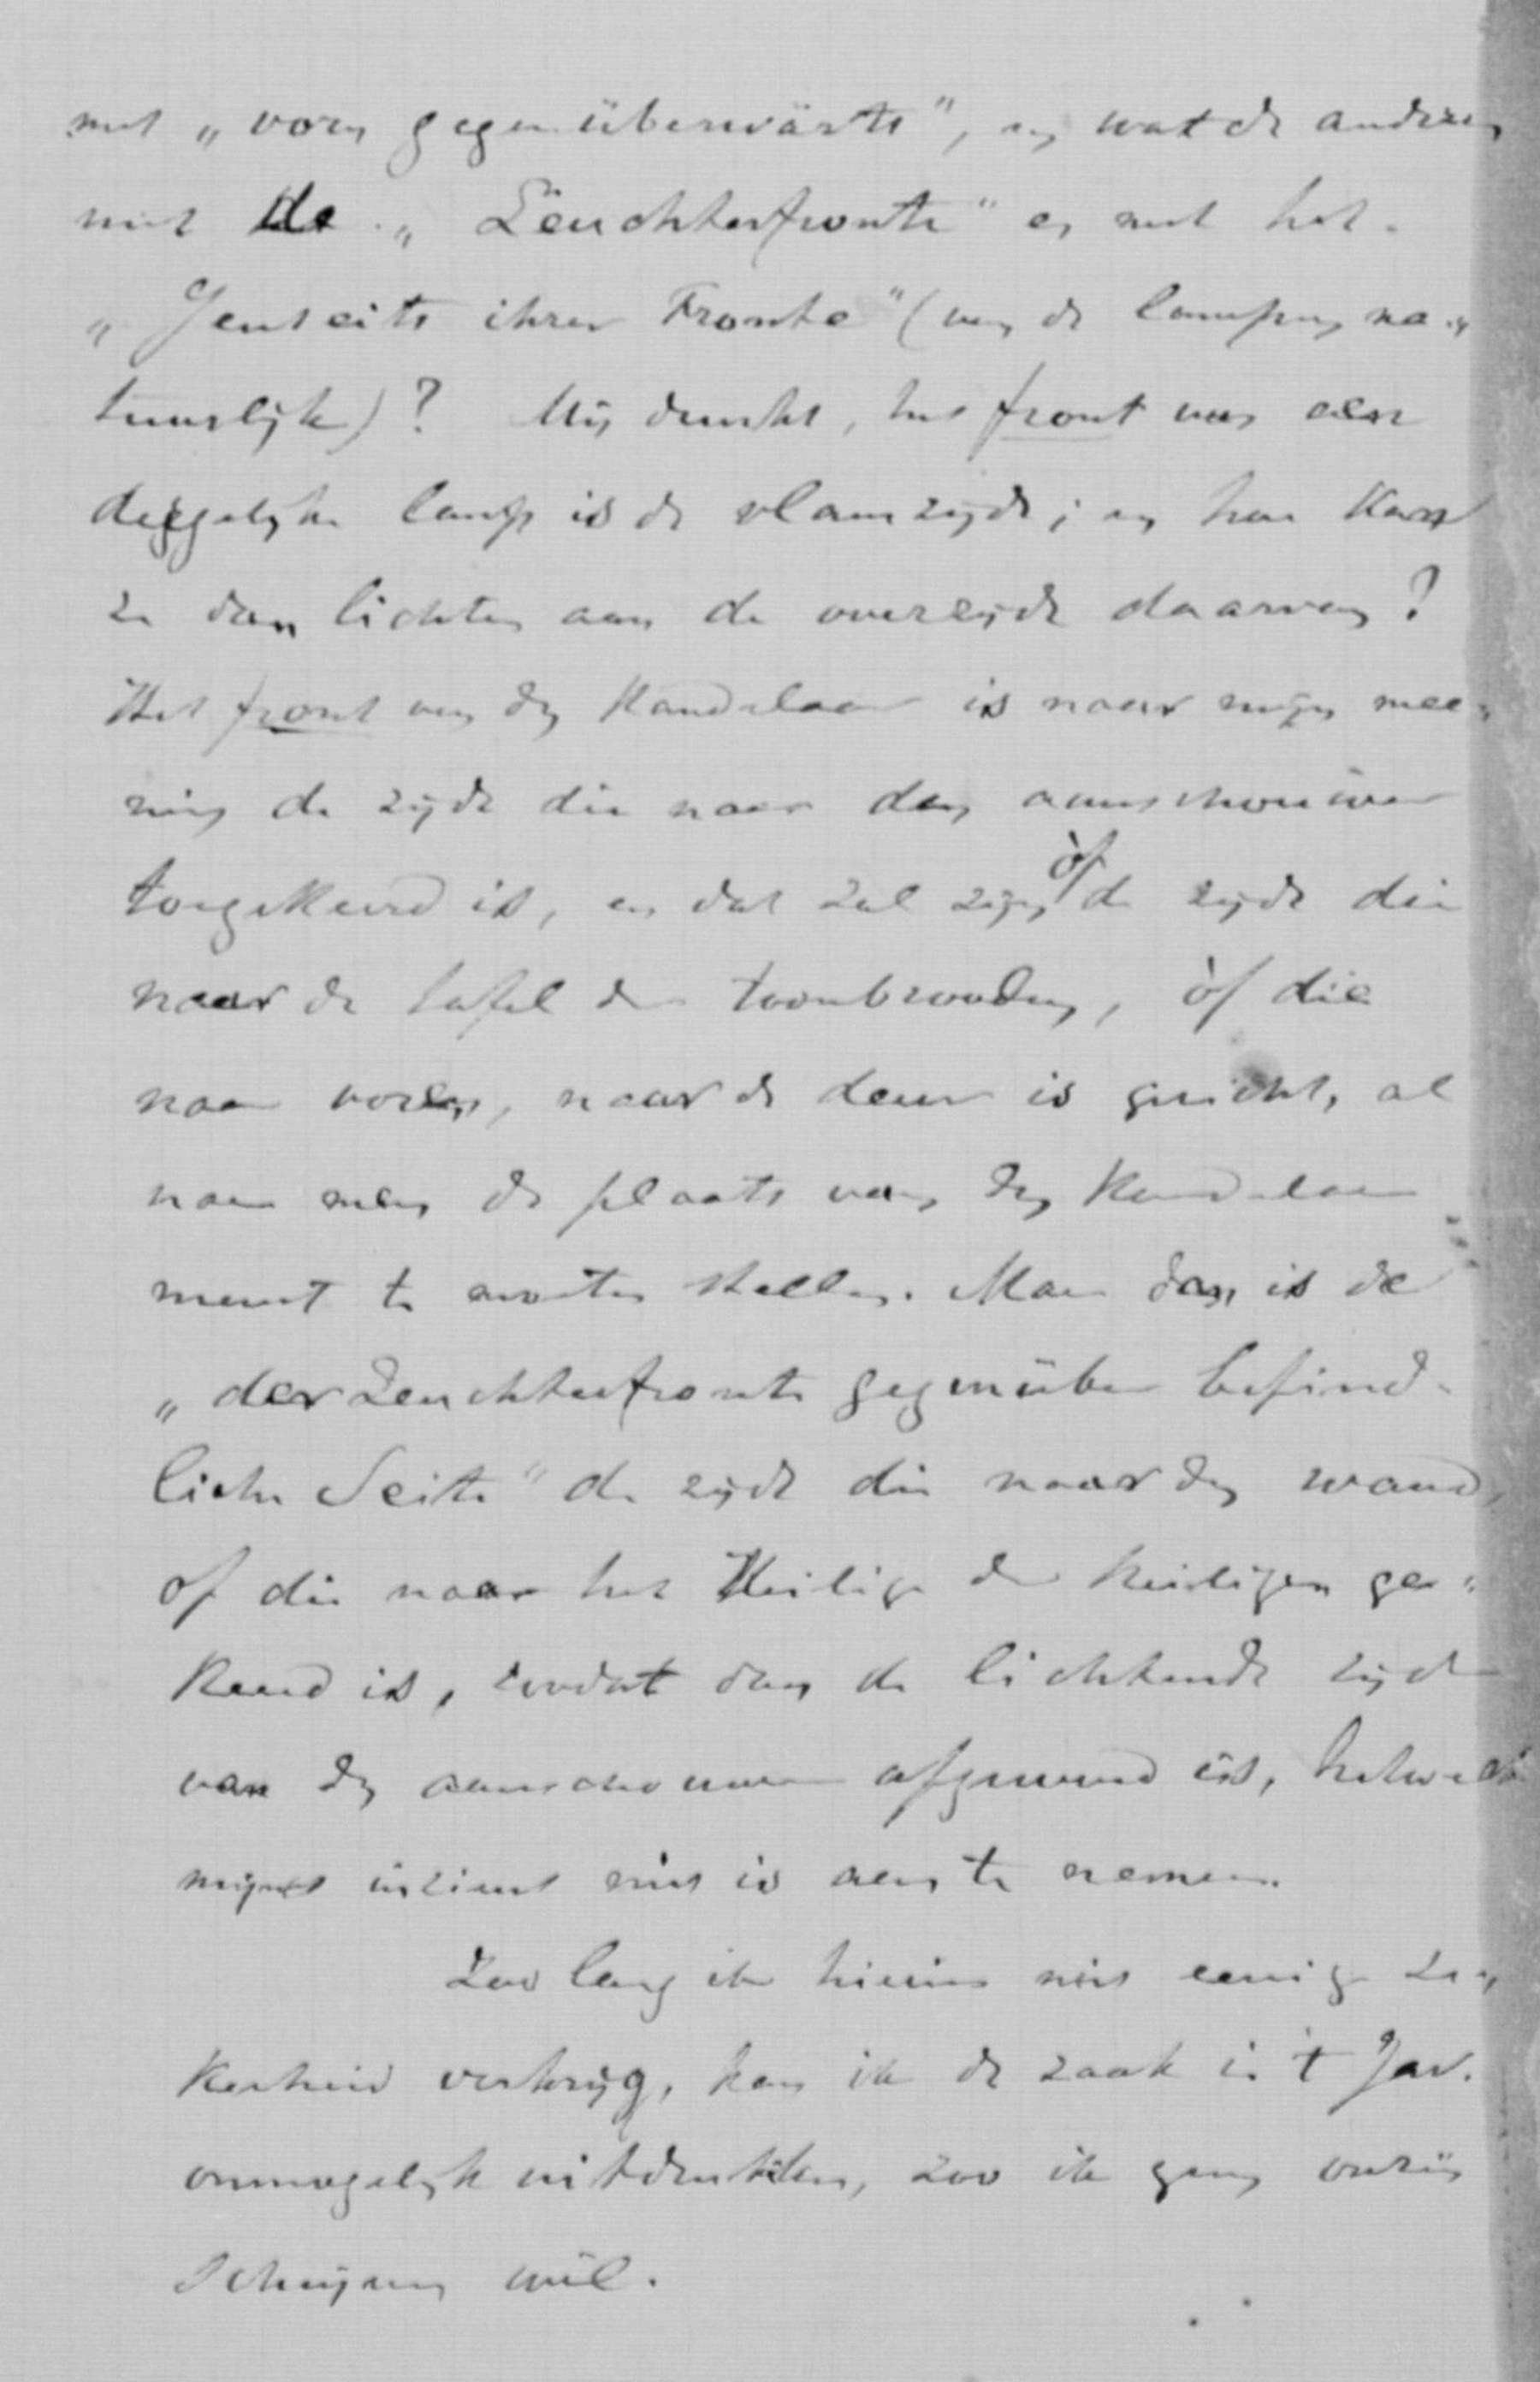 met „vorn gegenüberwärts", en wat de anderen
met de „Leuchterfronte" en met het
„Jenseits ihrer Fronte" (van de lampen na„
tuurlijk)? Mij dunkt, het front van een
dergelijke lamp is de vlamzijde; en hoe kan
ze dan lichten aan de overzijde daarvan?
Het front van den Kandelaar is naar mijn mee„
ning de zijde die naar den aanschouwer
toegekeerd is, en dat zal zijn òf de zijde die
naar de tafel der toonbrooden, òf die
naar voren, naar de deur is gericht, al
naar men de plaats van den Kandelaar
meent te moeten stellen. Maar dan is de
„der Leuchterfronte gegenüber befind-
liche Seite" de zijde die naar den wand,
of die naar het Heilige der heiligen ge„
keerd is, zoodat dan de lichtende zijde
van den aanschouwer afgewend is, hetwelk
mijns inziens niet is aan te nemen.
Zoo lang ik hierin niet eenige ze„
kerheid verkrijg, kan ik de zaak in 't Jav.
onmogelijk uitdrukken, zoo ik geen onzin
schrijven wil.